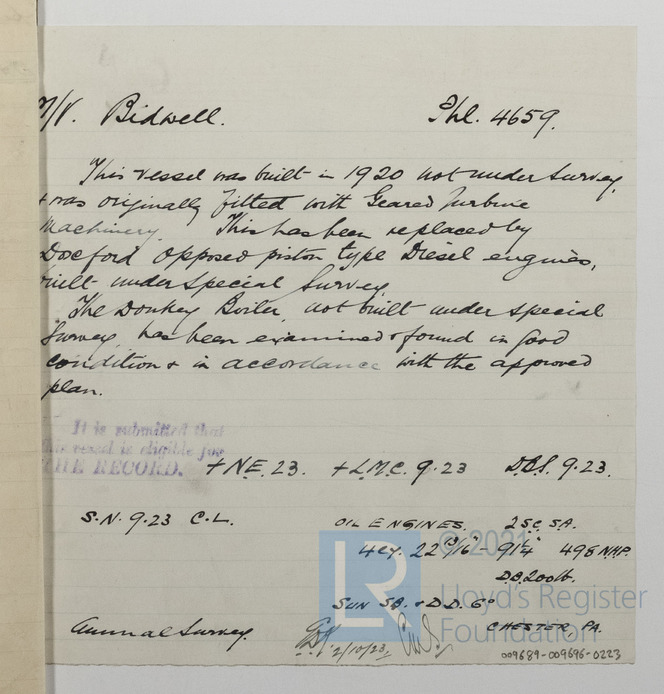 M/V. Bidwell. Phl. 4659.
This vessel was built in 1920 not under Survey,
& was originally fitted with Geared Turbine
Machinery. This has been replaced by
Doxford opposed piston type Diesel engines,
built under special Survey.
The Donkey Boiler, not built under special
Survey, has been examined & found in good
condition & in accordance with the approved
plan.
It is submitted that
this vessel is eligible for
THE RECORD. + N.E. 23. + L.M.C. 9.23 D.B.S. 9.23.
S.N. 9.23 C.L. OIL ENGINES. 2 S.C. S.A.
4 cy. 22 13/16" - 91 1/4" 498 NHP.
D.B. 200 lb.
SUN S.B. & D.D. Co
Annual Survey. CHESTER, PA.
2/10/23
009689-009696-0223
© 2021
LR
Lloyd's Register
Foundation